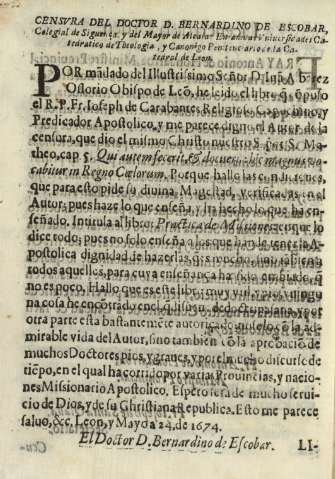 CENSVRA DEL DOCTOR D. BERNARDINO DE ESCOBAR,
Colegial de Siguença, y del Mayor de Alcalà en
Catedratico de Theologia, y Canonigo Penitenciario de la Ca-
tedral de Leon.
POR mãdado del Illustrissimo Señor D. Iuan Alvarez
Ossorio Obispo de Leõ, he leido el libro q̃ cõpuso
el R. P. Fr. Ioseph de Carabantes Religioso Capuchino, y
Predicador Apostolico, y me parece digno el Autor de la
censura, que dio el mismo Christo nuestro S. por S. Ma-
theo, cap. 5. Qui autem fecerit, & docuerit, hic magnus vo-
cabitur in Regno Cœlorum. Porque hallo las condiciones,
que para esto pide su divina Magestad, verificadas en el
Autor; pues haze lo que enseña, y
señado. Intitula al libro: Practica de Missiones:
dize todo; pues no solo enseña a los que han de tener la A-
postolica dignidad de hazerlas,
todos aquellos, para cuya enseñança ha sido embiado,
no es poco. Hallo que es este libro muy vtil, y
na cosa he encontrado en el
otra parte està bastantemẽte autorizado no solo cõ la ad-
mirable vida del Autor, sino tambien cõ la aprobaciõ de
muchos Doctores pios, y graues, y por el mucho discurso de
tiẽpo, en el qual ha corrido por varias Prouincias, y nacio-
nes Missionario Apostolico. Espero serà de mucho serui-
cio de Dios, y de su Christiana Republica. Esto me parece
saluo, &c. Leon, y Mayo à 24. de 1674.
El Doctor D. Bernardino de Escobar.
LI-